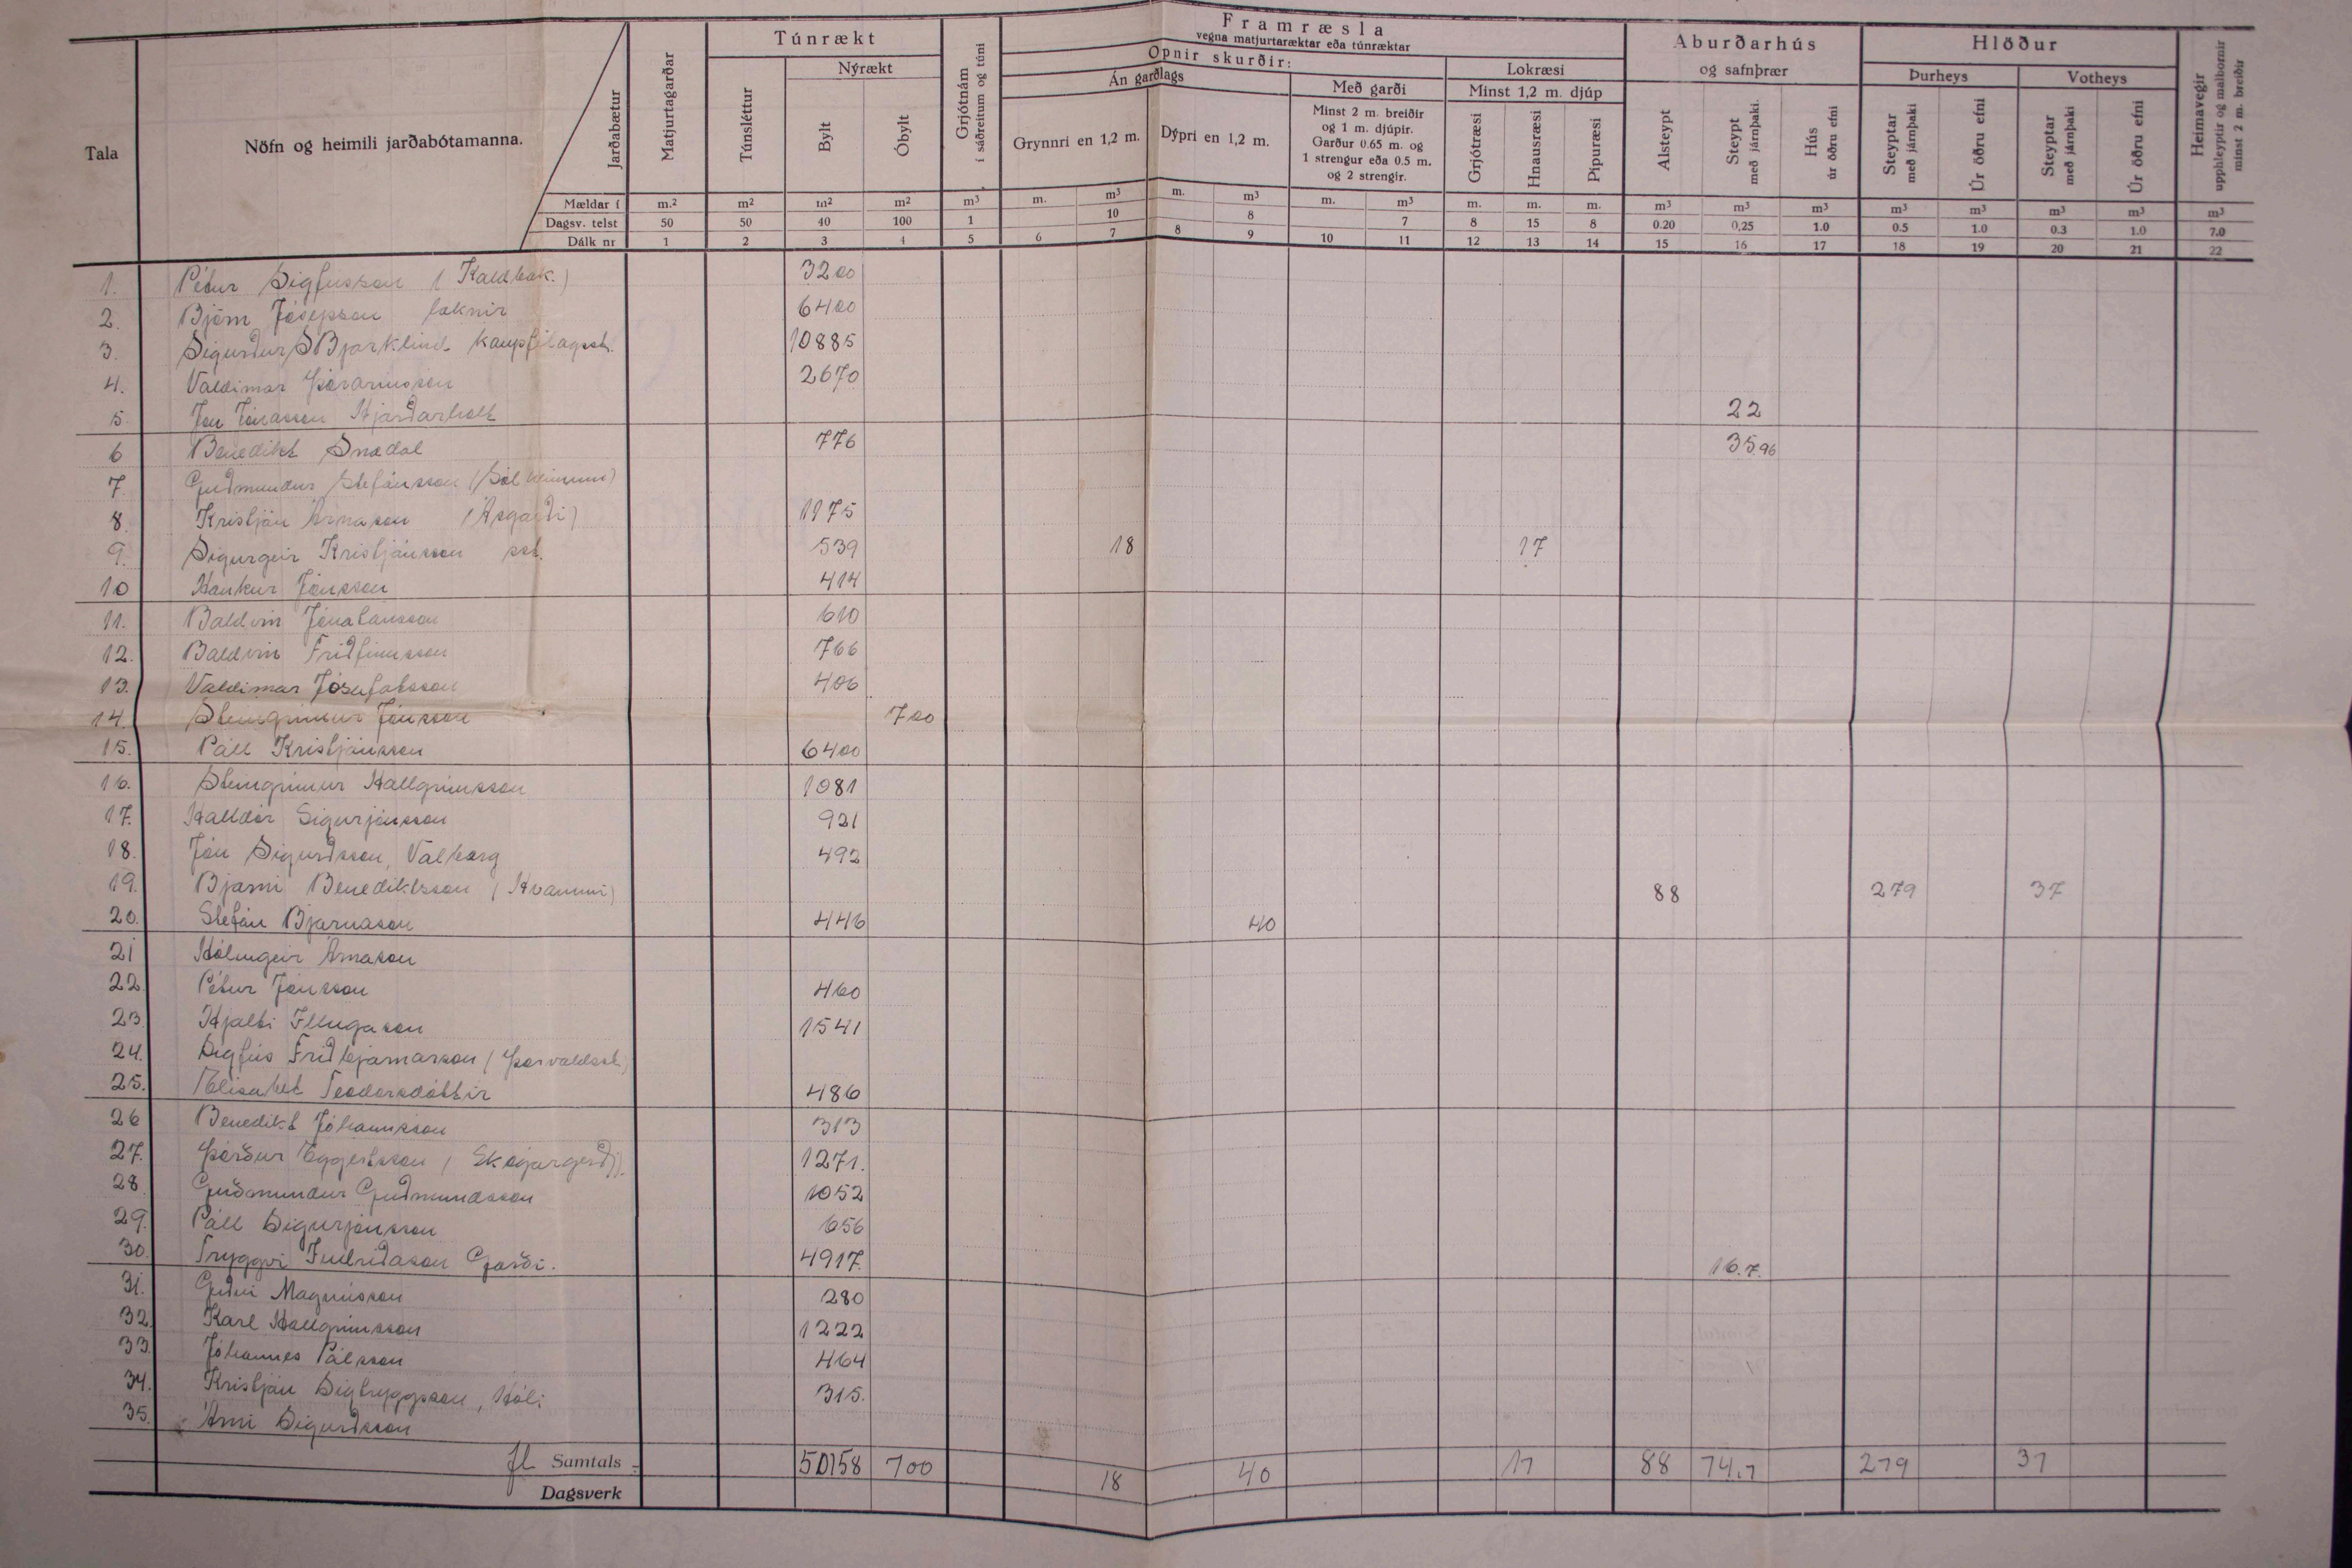 Framræsla
vegna matjurtaræktar eða túnræktar
Túnrækt
Opnir skurðir:
Aburðarhús
og safnþrær
Hlöður
Nýrækt
Án garðlags
Með garði
Lokræsi
Minst 1,2 m. djúp
Þurheys
Votheys
Tala
Nöfn og heimili jarðabótamanna.
Jarðabætur
Matjurtagarðar
Túnsléttur
Bylt
Óbylt
Grjótnám
í sáðreitum og túni
Grynnri en 1,2 m.
Dýpri en 1,2 m.
Minst 2 m. breiðir
og 1 m. djúpir.
Garður 0.65 m. og
1 strengur eða 0.5 m.
og 2 strengir.
Grjótræsi
Hnausræsi
Pípuræsi
Alsteypt
Steypt
með járnþaki.
Hús
úr öðru efni
Steyptar
með járnþaki
Úr öðru efni
Steyptar
með járnþaki
Úr öðru efni
Heimavegir
upphleyptir og malbornir
minst 2 m. breiðir
Mældar í m.² m² m² m² m³ m. m³ m. m³ m. m³ m. m. m. m³ m³ m³ m³ m³ m³ m³ m³
Dagsv. telst 50 50 40 100 1 10 8 7 8 15 8 0.20 0,25 1.0 0.5 1.0 0.3 1.0 7.0
Dálk nr 1 2 3 4 5 6 7 8 9 10 11 12 13 14 15 16 17 18 19 20 21 22
1. Pétur Sigfússon (Kaldbak.) 3200
2. Björn Jósepsson læknir 6400
3. Sigurður S Bjarklind kaupfélagsstj. 10885
4. Valdimar Þórarinsson 2670
5. Jón Jónasson Hjarðarholt 22
6 Benedikt Snædal 776 35.96
7. Guðmundur Stefánsson (Sólheimum)
8. Kristján Árnason (Ásgarði) 1975
9. Sigurgeir Kristjánsson pst. 539 18 17
10 Haukur Jónsson 414
11. Baldvin Jónatansson 610
12. Baldvin Friðfinnsson 766
13. Valdimar Jósufatsson 406
14. Steingrímur Jónsson 700
15. Páll Kristjánsson 6400
16. Steingrímur Hallgrímsson 1081
17. Halldór Sigurjónsson 921
18. Jón Sigurðsson, Valborg 492
19. Bjarni Benediktsson (Hvammi) 88 279 37
20. Stefán Bjarnason 446 40
21 Hólmgeir Árnason
22. Pétur Jónsson 460
23. Hjalti Illugason 1541
24. Sigfús Friðbjarnarson (Þorvaldsst.)
25. Elísabet Teodorsdóttir 486
26 Benedikt Jóhannsson 313
27. Þórður Eggertsson (Skógargerði). 1271.
28 Guðmundur Guðmundsson 1052
29. Páll Sigurjónsson 656
30. Tryggvi Indriðason Garði. 4917. 16.7.
31. Guðni Magnússon 280
32. Karl Hallgrímsson 1222
33. Jóhannes Pálsson 464
34. Kristján Sigtryggsson, Hóli 315.
35. Árni Sigurðsson
fl Samtals 50158 700 18 40 17 88 74.7 279 37
Dagsverk